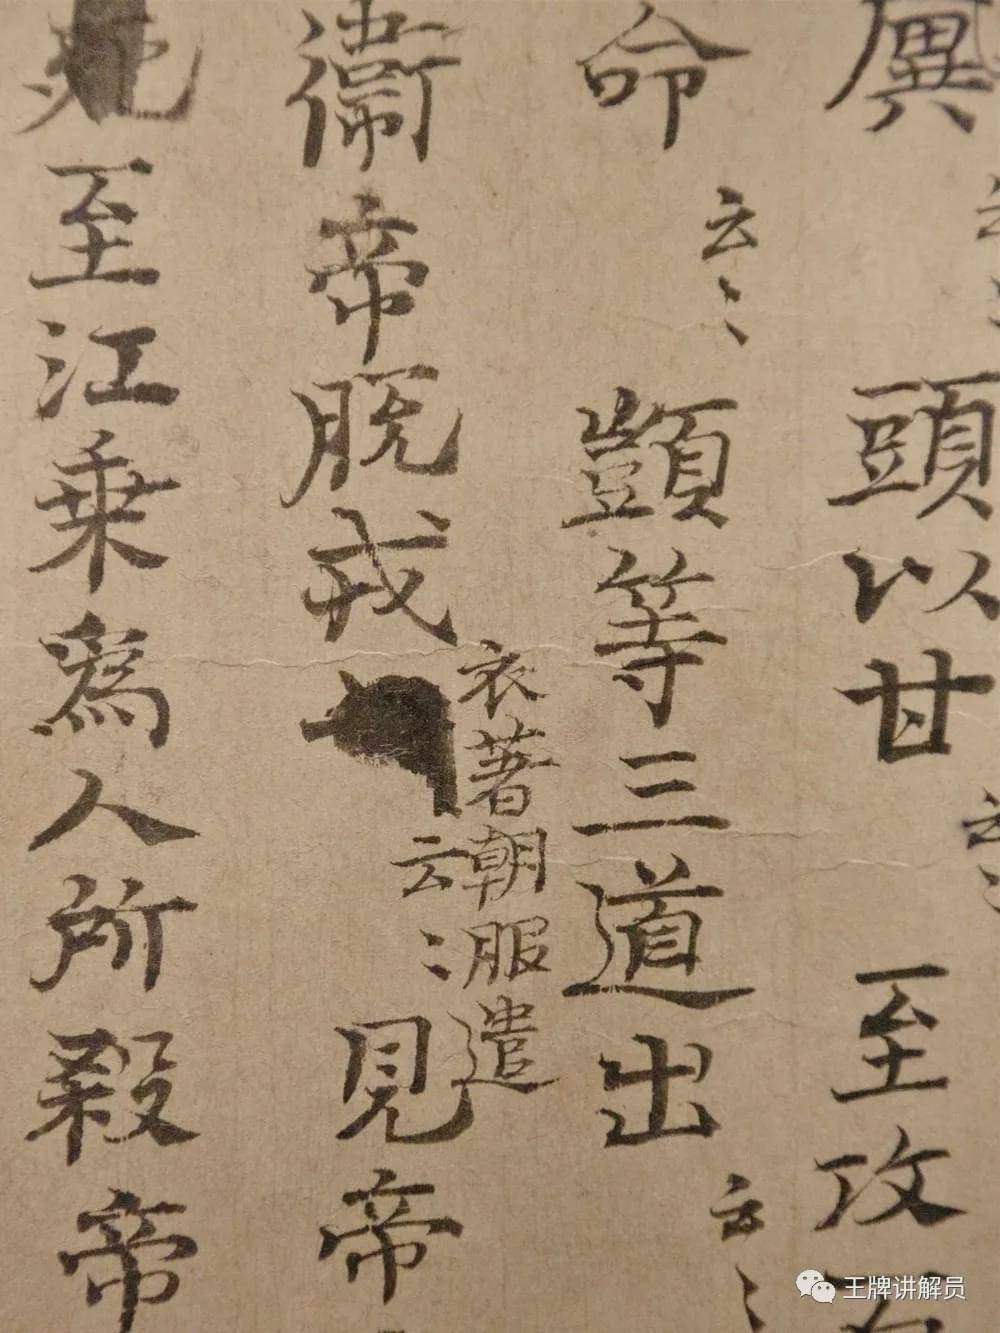 廙云〻頭以甘云〻至攻
命云〻顗等三道出云〻
衛帝脫戎
衣著朝服遣
云〻見帝
至江乗爲人所殺帝
王牌讲解员